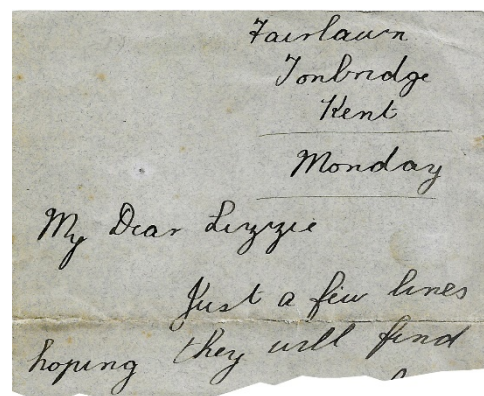 Fairlawn
Tonbridge
Kent
Monday
My Dear Lizzie
Just a few lines
hoping they will find